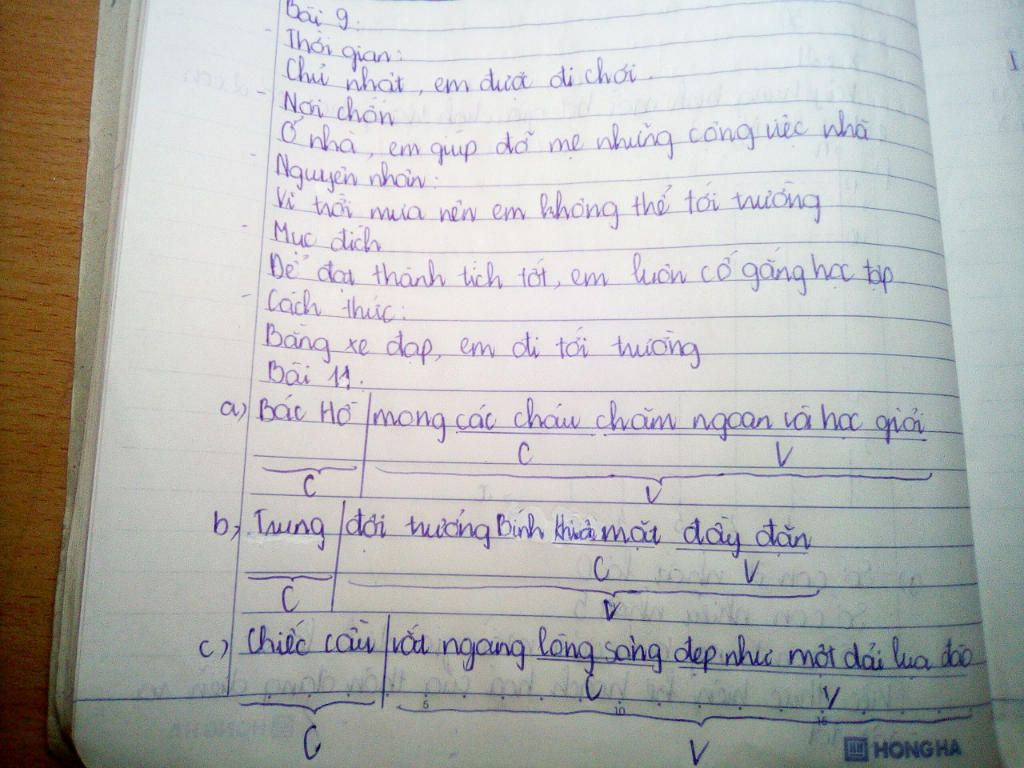 Bài 9:
- Thời gian:
Chủ nhật, em được đi chơi.
- Nơi chốn
Ở nhà, em giúp đỡ mẹ những công việc nhà
- Nguyên nhân:
Vì trời mưa nên em không thể tới trường
- Mục đích
Để đạt thành tích tốt, em luôn cố gắng học tập
- Cách thức:
Bằng xe đạp, em đi tới trường
Bài 11:
a) Bác Hồ mong các cháu chăm ngoan và học giỏi
C V
C V
b, Trung đối tượng Bính mặt đầy đặn
C V
C V
c) Chiếc cầu vắt ngang lòng sông đẹp như một dải lụa đào
C V
5 10 15
C V
HONG HA